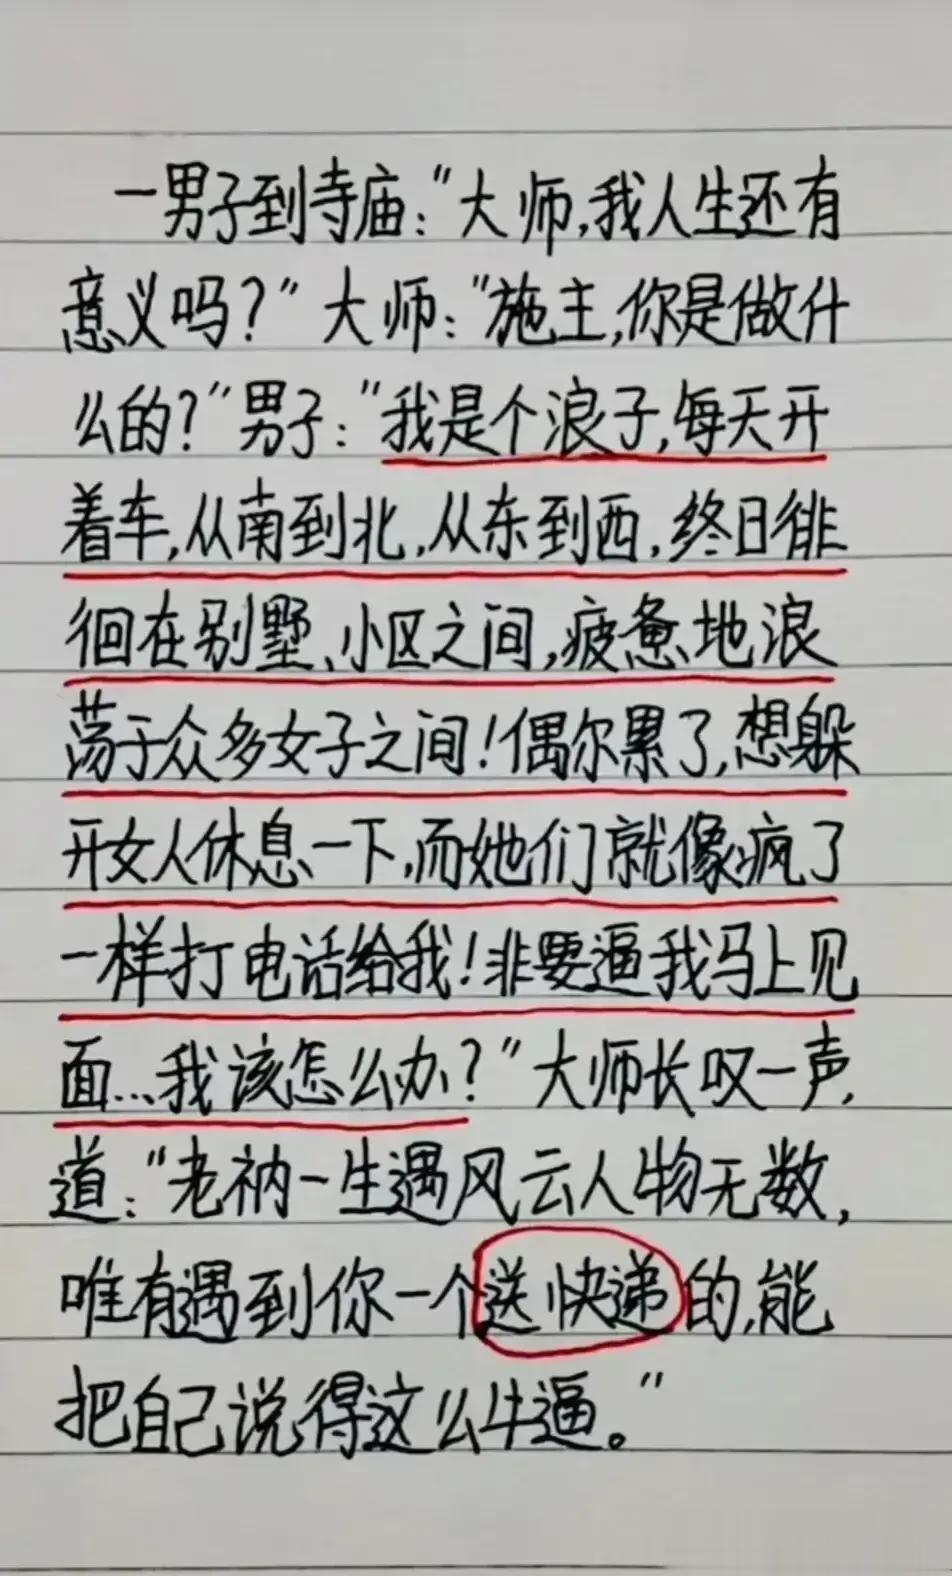 一男子到寺庙：“大师，我人生还有
意义吗？”大师：“施主，你是做什
么的？”男子：“我是个浪子，每天开
着车，从南到北，从东到西，终日徘
徊在别墅、小区之间，疲惫地浪
荡于众多女子之间！偶尔累了，想躲
开女人休息一下，而她们就像疯了
一样打电话给我！非要逼我马上见
面…我该怎么办？”大师长叹一声，
道：“老衲一生遇风云人物无数，
唯有遇到你一个送快递的，能
把自己说得这么牛逼。”